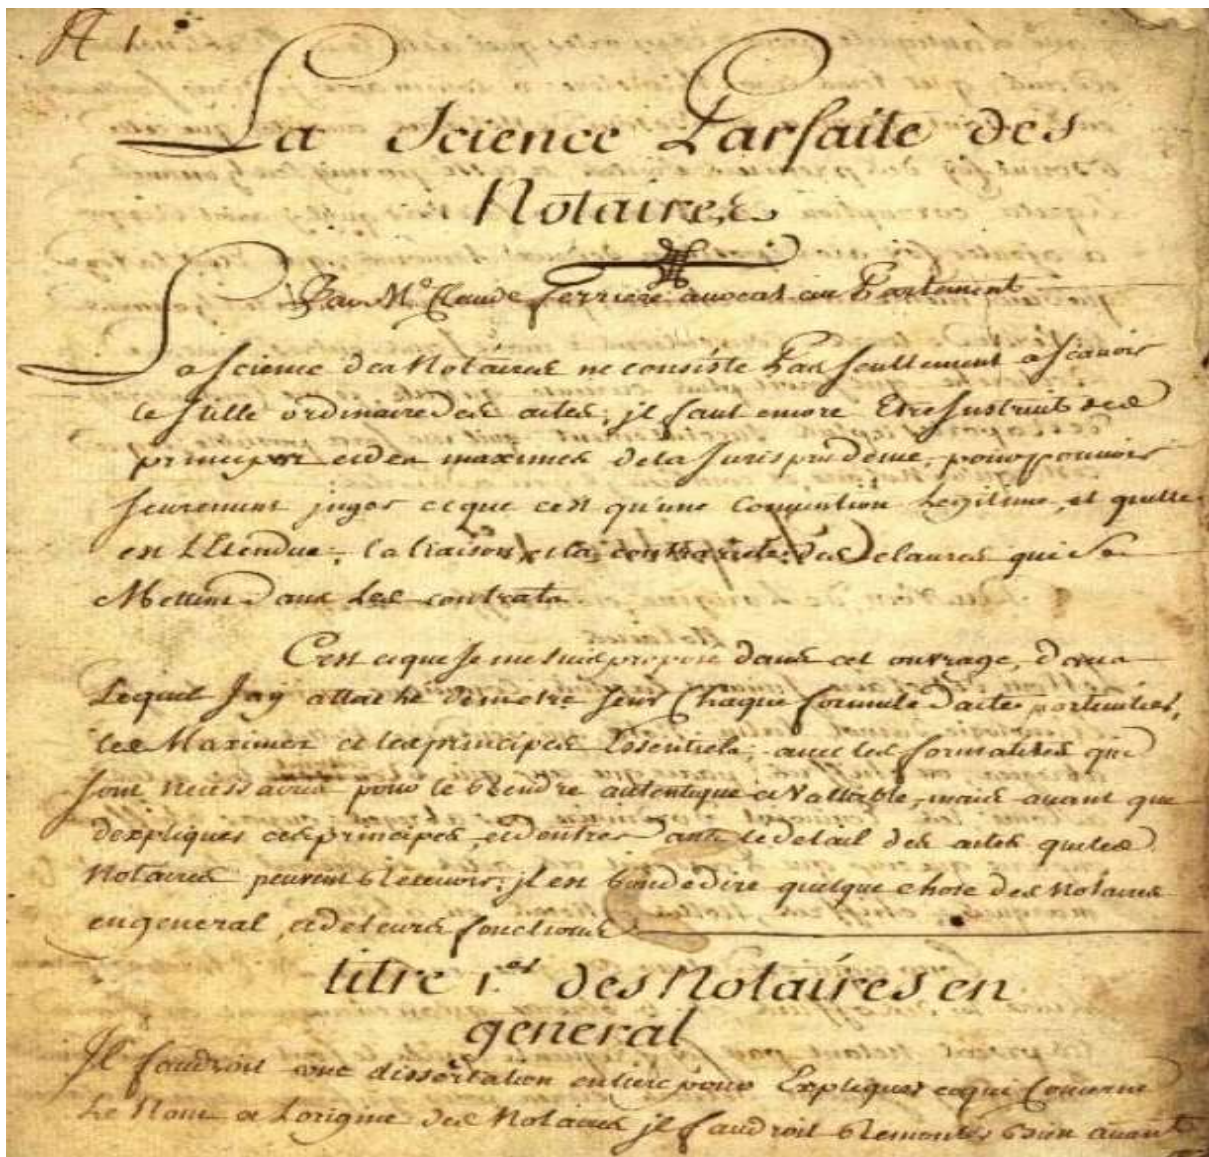 A 1
La Science Parfaite des
Notaires
Par Me Claude ferriere avocat au Parlement
La science des Notaires ne consiste Pas seullement a scavoir
le stille ordinaire des actes; jl faut encore Etre Instruit des
principes et des maximes de la Jurisprudence, pour pouvoir
seurement juger ce que c'est qu'une Convention Legitime, et quelle
est L'Etendue, la liaison, et la contrarieté des clauses qui se
Mettent Dans Les contrats
C'est ce que Je me suis proposé dans cet ouvrage, dans
Lequel Jay attaché de metre sur Chaque formule d'actes
les Maximes et les principes Essentiels, avec les formalités qui
sont necessaires pour le Rendre autentique et Vallable, mais avant que
d'expliquer ces principes, et d'entrer dans le detail des actes que les
Notaires peuvent Recevoir, jl est bon de dire quelque chose des Notaires
en general, et de leurs fonctions
titre 1.er des Notaires en
general
Il faudroit une dissertation entiere pour Expliquer ce qui Concerne
Le Nom et Lorigine des Notaires jl faudroit Remonter bien avant